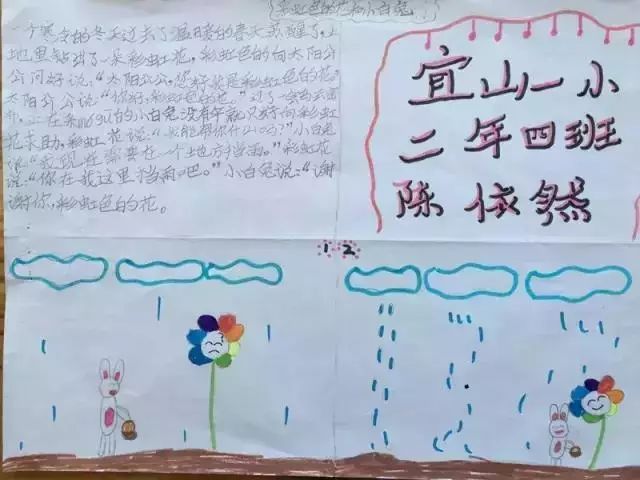 彩虹色的花和小白兔
一个寒冷的冬天过去了温暖的春天
地里钻出了一朵彩虹花。彩虹色的向太阳公
公问好说:“太阳公公,您好我是彩虹色的花。”
太阳公公说:“你好,彩虹色的花。”过了一会
的小白兔没有 只好向彩虹
花求助。彩虹花说:“我能帮你什么吗?”小白兔
说:“我现在需要在一个地方挡雨。”彩虹花
说:“你在我这里挡雨吧。”小白兔说:“谢
谢你,彩虹色的花。
宜山一小
二年四班
陈依然
1-2